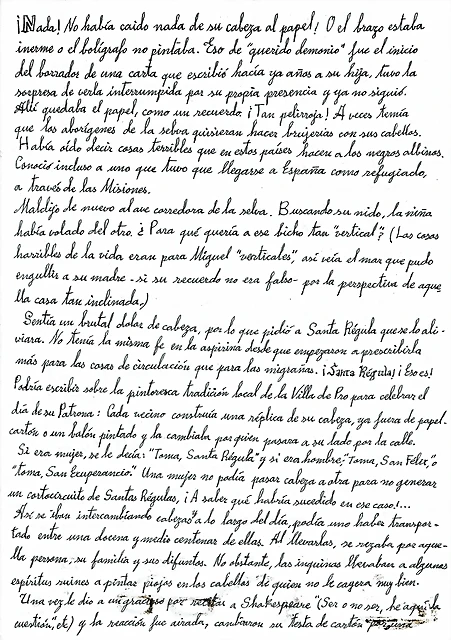 ¡Nada! No había caido nada de su cabeza al papel! O el brazo estaba
inerme o el bolígrafo no pintaba. Eso de "querido demonio" fue el inicio
del borrador de una carta que escribió hacía ya años a su hija, tuvo la
sorpresa de verla interrumpida por su propia presencia y ya no siguió.
Allí quedaba el papel, como un recuerdo. ¡Tan pelirroja! A veces temía
que los aborígenes de la selva quisieran hacer brujerías con sus cabellos.
Había oído decir cosas terribles que en estos países hacen a los negros albinos.
Conoció incluso a uno que tuvo que llegarse a España como refugiado,
a través de las Misiones.
Maldijo de nuevo al ave corredora de la selva. Buscando su nido, la niña
había volado del otro. ¿Para qué quería a ese bicho tan "vertical"? (Las cosas
horribles de la vida eran para Miguel "verticales", así veía el mar que pudo
engullir a su madre - si su recuerdo no era falso - por la perspectiva de aque-
lla casa tan inclinada.)
Sentía un brutal dolor de cabeza, por lo que pidió a Santa Régula que se lo ali-
viara. No tenía la misma fe en la aspirina desde que empezaron a prescribirla
más para las cosas de circulación que para las migrañas. ¡Santa Régula! ¡Eso es!
Podría escribir sobre la pintoresca tradición local de la Villa de Pro para celebrar el
día de su Patrona: Cada vecino construía una réplica de su cabeza, ya fuera de papel-
cartón o un balón pintado y la cambiaba por quien pasara a su lado por la calle.
Si era mujer, se le decía: "Toma, Santa Régula" y si era hombre: "Toma, San Félix", o
"toma, San Exuperancio". Una mujer no podía pasar cabeza a otra para no generar
un cortocircuito de Santas Régulas, ¡A saber qué habría sucedido en ese caso!...
Así se iban intercambiando cabezas y a lo largo del día, podía uno haber transpor-
tado entre una docena y medio centenar de ellas. Al llevarlas, se rezaba por aque-
lla persona, su familia y sus difuntos. No obstante, las inquinas llevaban a algunos
espíritus ruines a pintar piojos en los cabellos de quien no le cayera muy bien.
Una vez le dio a un gracioso por recitar a Shakespeare ("Ser o no ser, he aquí la
cuestión", etc) y la reacción fue airada, cambiaron su testa de cartón por una